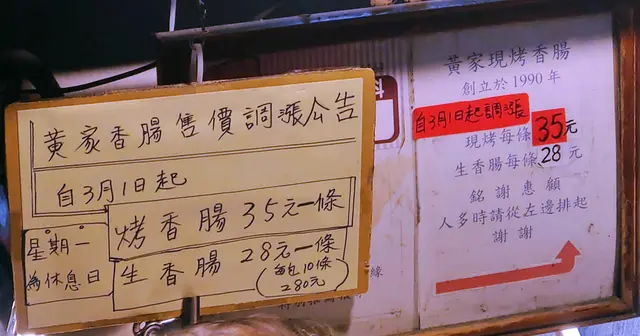 黃家香腸售價調漲公告
自3月1日起
烤香腸 35元一條
生香腸 28元一條
(每包10條
280元)
星期一
為休息日
黃家現烤香腸
創立於1990年
自3月1日起調漲
現烤每條35元
生香腸每條28元
銘謝惠顧
人多時請從左邊排起
謝謝
線